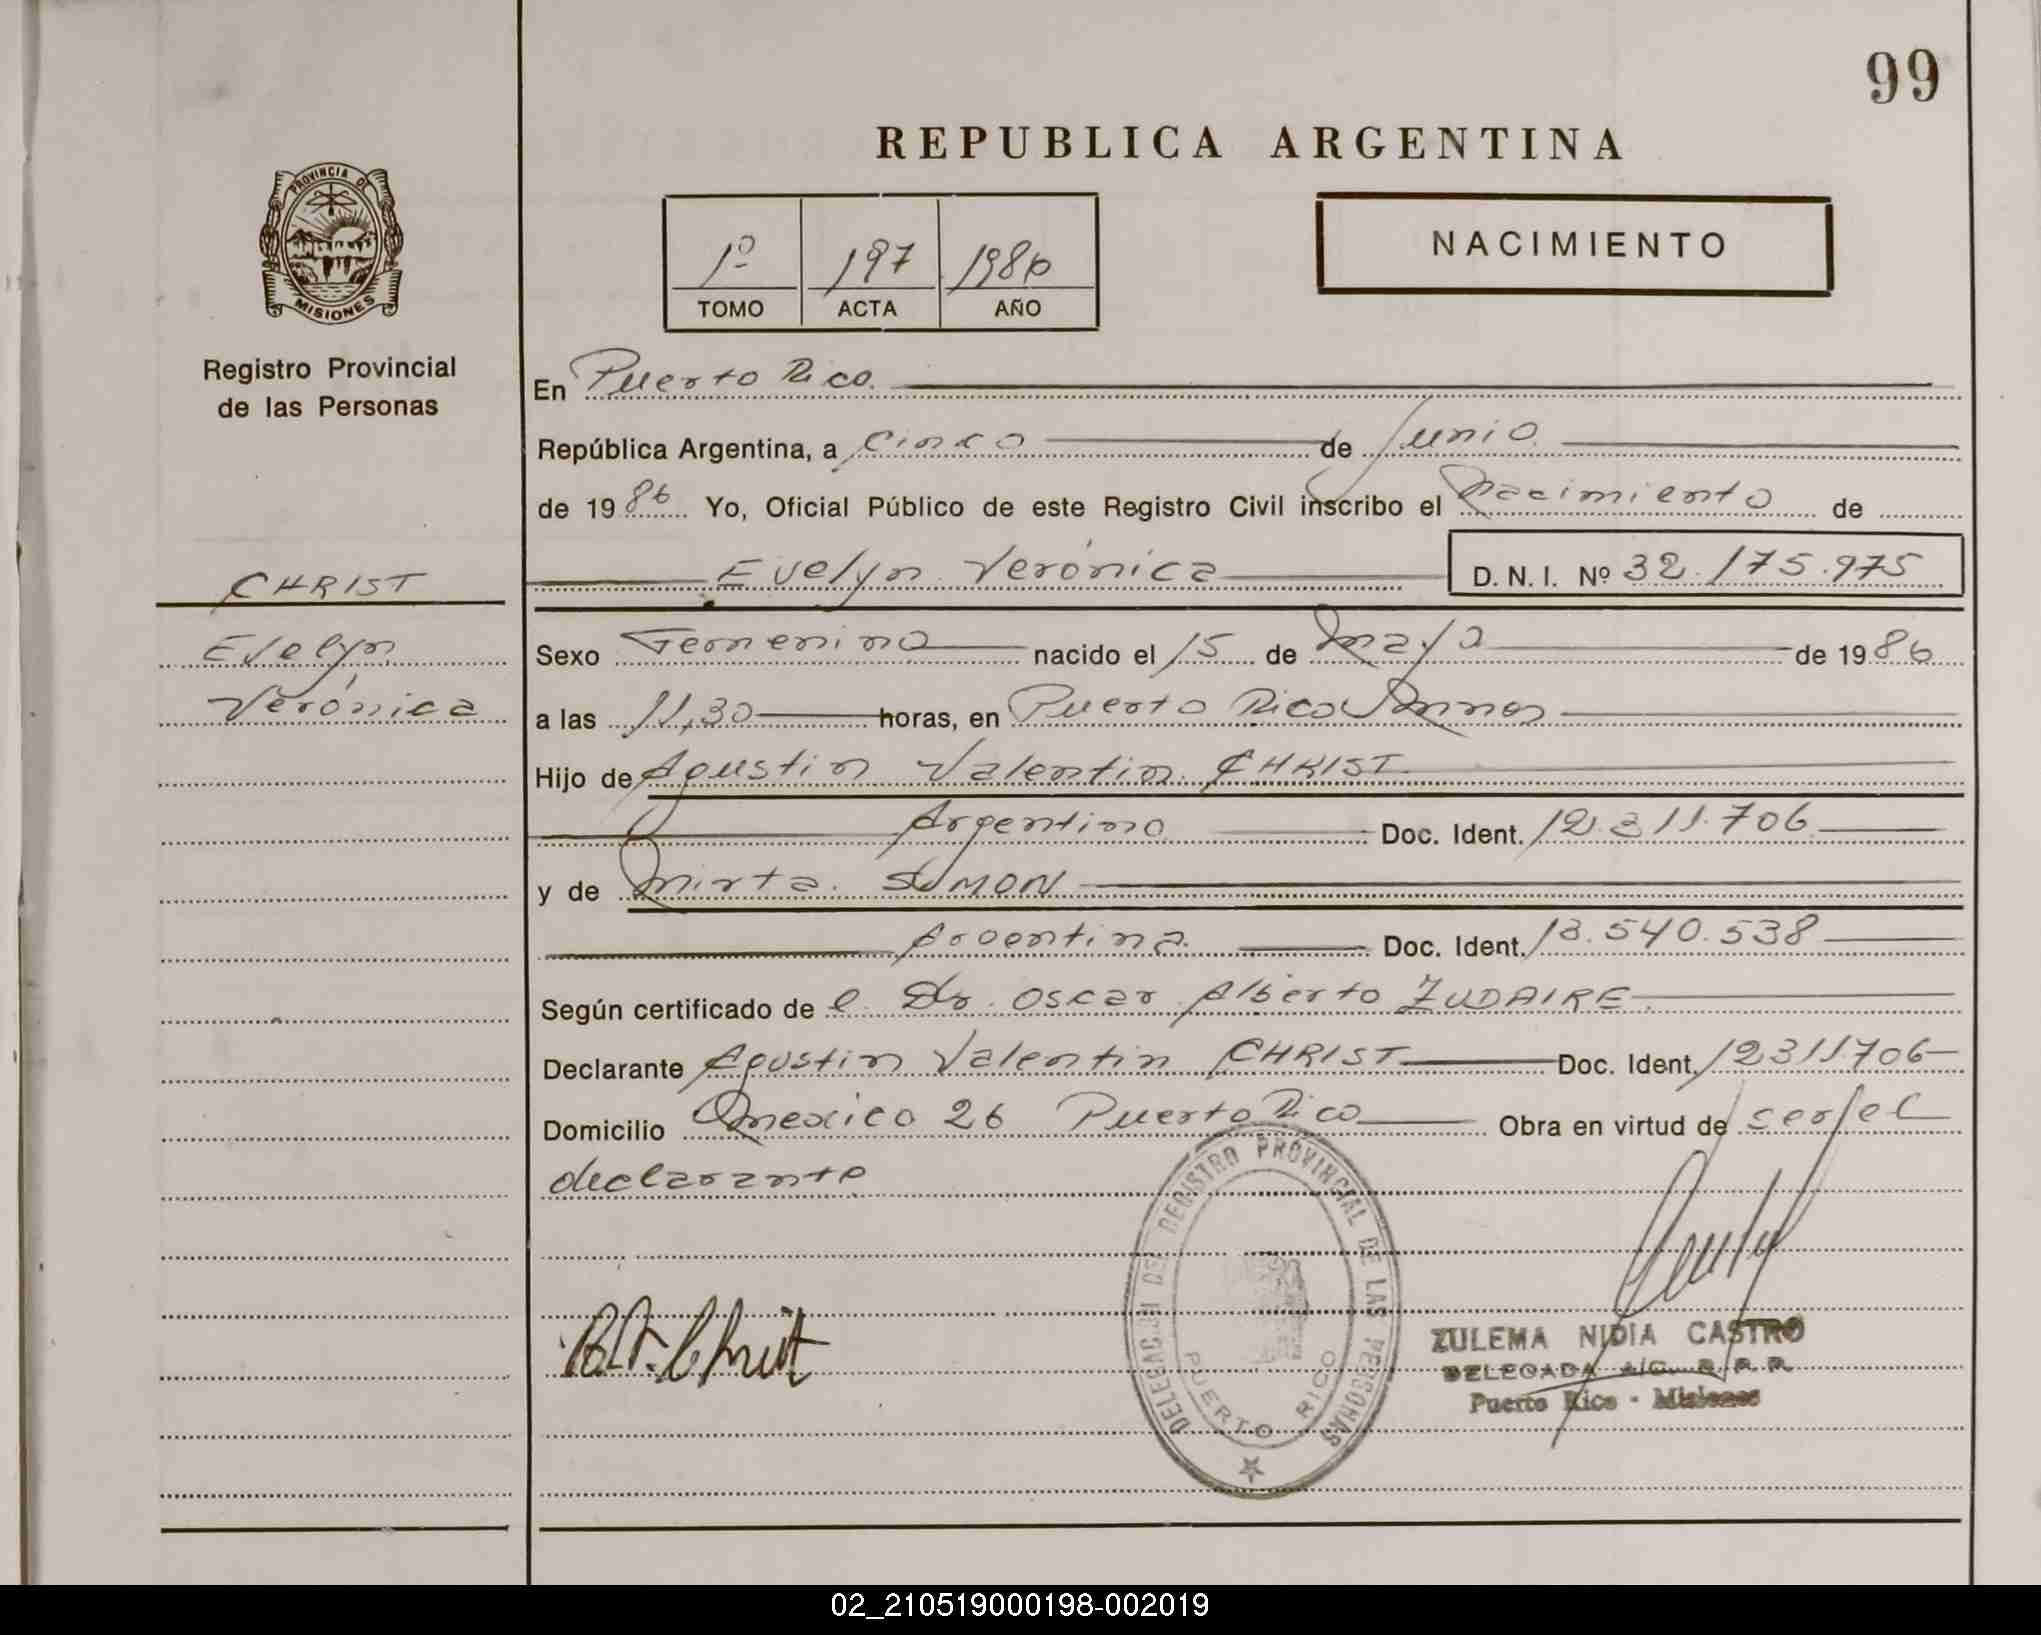 99
REPUBLICA ARGENTINA
PROVINCIA DE
MISIONES
1º 197 1986
TOMO ACTA AÑO
NACIMIENTO
Registro Provincial
de las Personas
En Puerto Rico.
República Argentina, a cinco de Junio
de 1986 Yo, Oficial Público de este Registro Civil inscribo el Nacimiento de
CHRIST
Evelyn
Verónica
Evelyn Verónica D. N. I. Nº 32.175.975
Sexo Femenino nacido el 15 de Mayo de 1986
a las 11,30 horas, en Puerto Rico
Hijo de Agustin Valentin CHRIST
Argentino Doc. Ident. 12.311.706
y de Mirta SIMON
Argentina Doc. Ident. 13.540.538
Según certificado de el Dr. Oscar Alberto ZUDAIRE
Declarante Agustin Valentin CHRIST Doc. Ident. 12311706
Domicilio Mexico 26 Puerto Rico Obra en virtud de ser el
declarante
DELEGACION DEL REGISTRO PROVINCIAL DE LAS PERSONAS
PUERTO RICO
ZULEMA NIDIA CASTRO
DELEGADA A/C. R. P. P.
Puerto Rico - Misiones
02_210519000198-002019